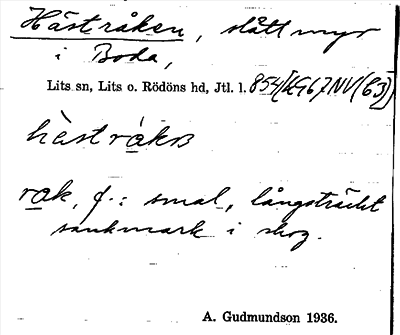 Hästråken, slåttmyr
i Boda,
Lits sn, Lits o. Rödöns hd, Jtl. l. 854[4967NV(63)]
hèstråkɞ
råk, f.: smal, långsträckt
sankmark i skog.
A. Gudmundson 1936.